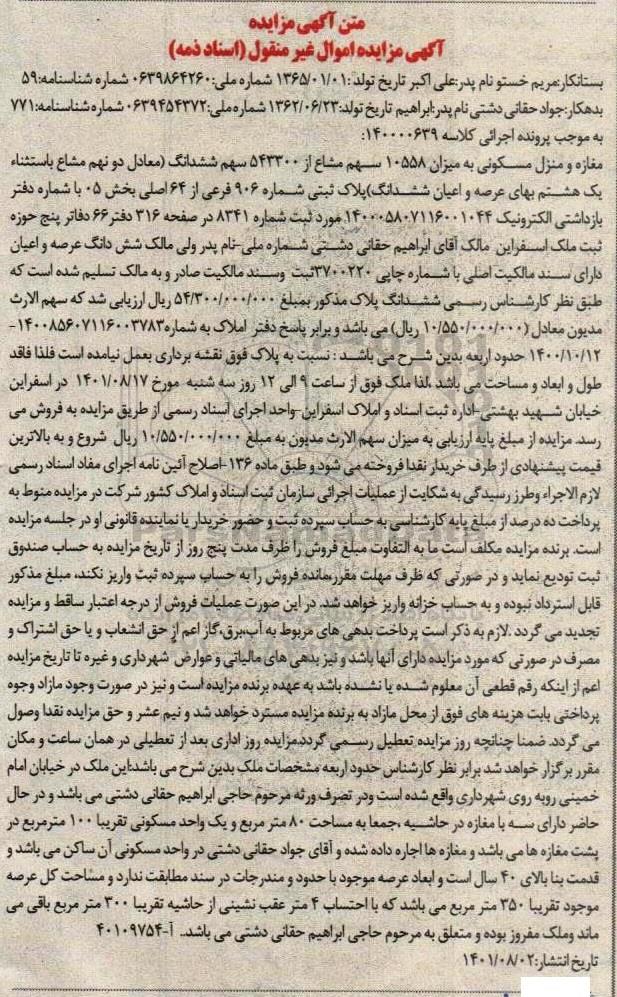 متن آگهی مزایده
آگهی مزایده اموال غیر منقول (اسناد ذمه)
بستانکار:مریم خستو نام پدر:علی اکبر تاریخ تولد:۱۳۶۵/۰۱/۰۱ شماره ملی:۰۶۳۹۸۶۴۲۶۰ شماره شناسنامه:۵۹
بدهکار:جواد حقانی دشتی نام پدر:ابراهیم تاریخ تولد:۱۳۶۲/۰۶/۲۳ شماره ملی:۰۶۳۹۴۵۴۳۷۲ شماره شناسنامه:۷۷۱
به موجب پرونده اجرائی کلاسه ۱۴۰۰۰۰۶۳۹:
مغازه و منزل مسکونی به میزان ۱۰۵۵۸ سهم مشاع از ۵۴۳۳۰۰ سهم ششدانگ (معادل دو نهم مشاع باستثناء
یک هشتم بهای عرصه و اعیان ششدانگ)پلاک ثبتی شماره ۹۰۶ فرعی از ۶۴ اصلی بخش ۰۵ با شماره دفتر
بازداشتی الکترونیک ۱۴۰۰۰۵۸۰۷۱۱۶۰۰۱۰۴۴ مورد ثبت شماره ۸۳۴۱ در صفحه ۳۱۶ دفتر۶۶ دفاتر پنج حوزه
ثبت ملک اسفراین مالک آقای ابراهیم حقانی دشتی شماره ملی-نام پدر ولی مالک شش دانگ عرصه و اعیان
دارای سند مالکیت اصلی با شماره چاپی ۳۷۰۰۲۲۰ثبت وسند مالکیت صادر و به مالک تسلیم شده است که
طبق نظر کارشناس رسمی ششدانگ پلاک مذکور بمبلغ ۵۴/۳۰۰/۰۰۰/۰۰۰ ریال ارزیابی شد که سهم الارث
مدیون معادل (۱۰/۵۵۰/۰۰۰/۰۰۰ ریال) می باشد و برابر پاسخ دفتر املاک به شماره۱۴۰۰۸۵۶۰۷۱۱۶۰۰۳۷۸۳-
۱۴۰۰/۱۰/۱۲ حدود اربعه بدین شرح می باشد : نسبت به پلاک فوق نقشه برداری بعمل نیامده است فلذا فاقد
طول و ابعاد و مساحت می باشد ،لذا ملک فوق از ساعت ۹ الی ۱۲ روز سه شنبه مورخ ۱۴۰۱/۰۸/۱۷ در اسفراین
خیابان شهید بهشتی-اداره ثبت اسناد و املاک اسفراین-واحد اجرای اسناد رسمی از طریق مزایده به فروش می
رسد. مزایده از مبلغ پایه ارزیابی به میزان سهم الارث مدیون به مبلغ ۱۰/۵۵۰/۰۰۰/۰۰۰ ریال شروع و به بالاترین
قیمت پیشنهادی از طرف خریدار نقدا فروخته می شود و طبق ماده ۱۳۶-اصلاح آئین نامه اجرای مفاد اسناد رسمی
لازم الاجراء وطرز رسیدگی به شکایت از عملیات اجرائی سازمان ثبت اسناد و املاک کشور شرکت در مزایده منوط به
پرداخت ده درصد از مبلغ پایه کارشناسی به حساب سپرده ثبت و حضور خریدار یا نماینده قانونی او در جلسه مزایده
است. برنده مزایده مکلف است ما به التفاوت مبلغ فروش را ظرف مدت پنج روز از تاریخ مزایده به حساب صندوق
ثبت تودیع نماید و در صورتی که ظرف مهلت مقرر،مانده فروش را به حساب سپرده ثبت واریز نکند، مبلغ مذکور
قابل استرداد نبوده و به حساب خزانه واریز خواهد شد. در این صورت عملیات فروش از درجه اعتبار ساقط و مزایده
تجدید می گردد .لازم به ذکر است پرداخت بدهی های مربوط به آب،برق،گاز اعم از حق انشعاب و یا حق اشتراک و
مصرف در صورتی که مورد مزایده دارای آنها باشد و نیز بدهی های مالیاتی و عوارض شهرداری و غیره تا تاریخ مزایده
اعم از اینکه رقم قطعی آن معلوم شده یا نشده باشد به عهده برنده مزایده است و نیز در صورت وجود مازاد وجوه
پرداختی بابت هزینه های فوق از محل مازاد به برنده مزایده مسترد خواهد شد و نیم عشر و حق مزایده نقدا وصول
می گردد. ضمنا چنانچه روز مزایده تعطیل رسمی گردد،مزایده روز اداری بعد از تعطیلی در همان ساعت و مکان
مقرر برگزار خواهد شد برابر نظر کارشناس حدود اربعه مشخصات ملک بدین شرح می باشد:این ملک در خیابان امام
خمینی روبه روی شهرداری واقع شده است ودر تصرف ورثه مرحوم حاجی ابراهیم حقانی دشتی می باشد و در حال
حاضر دارای سه با مغازه در حاشیه ،جمعا به مساحت ۸۰ متر مربع و یک واحد مسکونی تقریبا ۱۰۰ مترمربع در
پشت مغازه ها می باشد و مغازه ها اجاره داده شده و آقای جواد حقانی دشتی در واحد مسکونی آن ساکن می باشد و
قدمت بنا بالای ۴۰ سال است و ابعاد عرصه موجود با حدود و مندرجات در سند مطابقت ندارد و مساحت کل عرصه
موجود تقریبا ۳۵۰ متر مربع می باشد که با احتساب ۴ متر عقب نشینی از حاشیه تقریبا ۳۰۰ متر مربع باقی می
ماند وملک مفروز بوده و متعلق به مرحوم حاجی ابراهیم حقانی دشتی می باشد.. آ-۴۰۱۰۹۷۵۴
تاریخ انتشار:۱۴۰۱/۰۸/۰۲